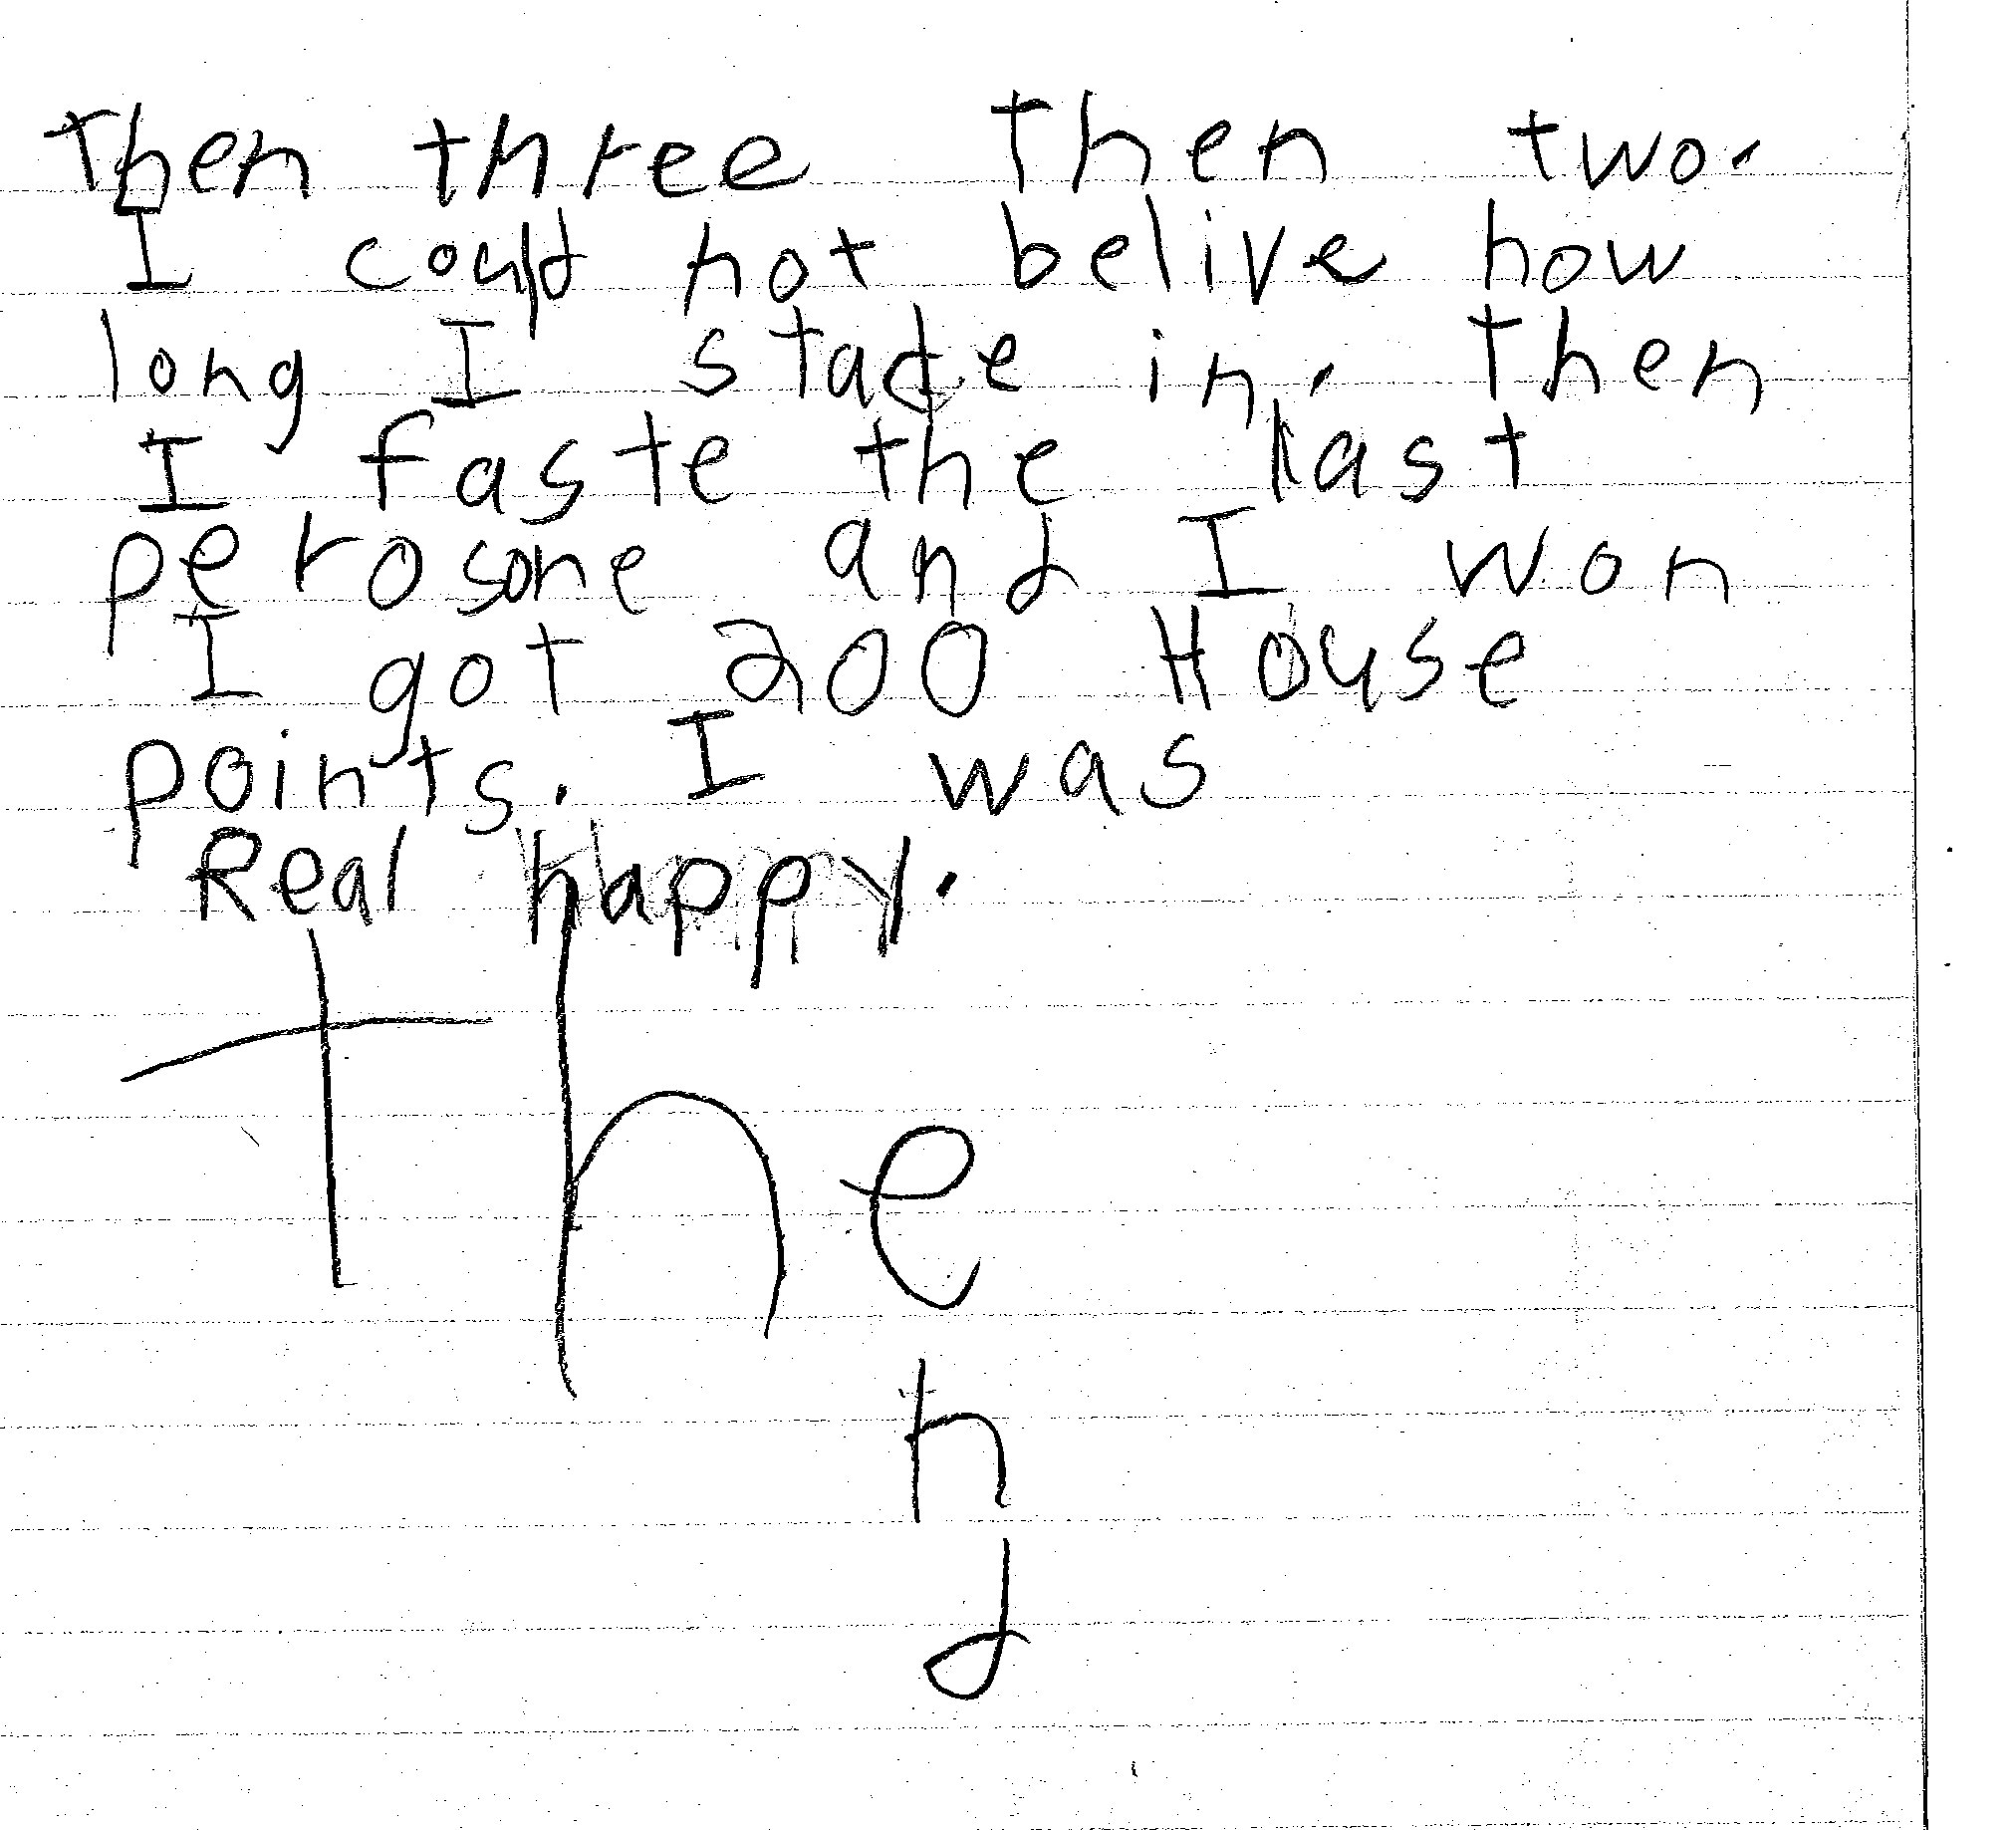 Then three Then two.
I could not belive how
long I stade in. Then
I faste the last
perosone and I won
I got 200 House
points. I was
Real happy.
The
n
d